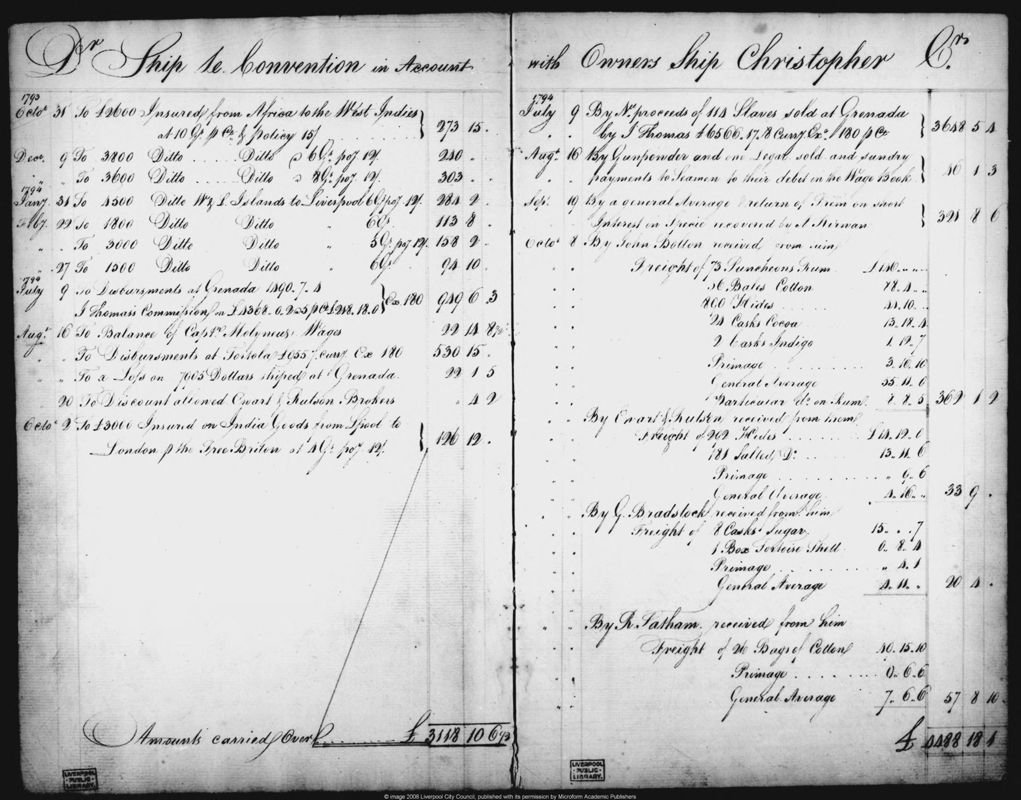 Dr Ship le Convention in Account
1793
Octo 31 To £2600 Insured from Africa to the West Indies
at 10 Gs p Ct & policy 15/ 273 15 .
Decr 9 To 3800 Ditto ..... Ditto @ 6 Gs poy 12/. 240 . .
" " To 3600 Ditto ..... Ditto @ 8 Gs poy 12/. 303 . .
1794
Jany 31 To 4500 Ditto W & L Islands to Liverpool 6 Gs poy 12/. 284 2 .
Feby 22 To 1800 Ditto Ditto " 6 Gs 113 8 .
" " To 3000 Ditto Ditto " 5 Gs poy 12/. 158 2 .
" 27 To 1500 Ditto Ditto " 6 Gs 94 10
1794
July 9 To Disbursments at Grenada 1490.7.4
J Thomas's Commission on £4368.0.2 @ 5 p Ct £218.18.0 Ex 180 949 6 3
Augt 16 To Balance of Captn Molyneux Wages 22 14 8
" " To Disbursments at Tortola £955.7 Curry Ex 180 530 15 .
" " To a Loss on 7905 Dollars shiped at Grenada 22 1 5
" 20 To Discount allowed Ewart & Rutson Brokers " 4 2
Octo 2 To £3000 Insured on India Goods from Lpool to
London p the Free Briton at 4 Gs poy 12/. 126 12 .
Amounts carried Over £ 3118 10 6
with Owners Ship Christopher Cr.
1794
July 9 By Nt proceeds of 114 Slaves sold at Grenada
by J Thomas £6566.17.8 Curry Ex 180 p Ct 3648 5 4
Augt 16 By Gunpowder and one sold and sundry
payments to Seamen to their debit in the Wage Book 86 1 3
Sepr 19 By a general Average & return of Prem on short
Interest in Specie recovered by A Kirwan 321 8 6
Octo 8 By John Bolton received from him
Freight of 73 Puncheons Rum £146 .. ..
56 Bales Cotton 78.4..
860 Hides 44.10..
24 Casks Cocoa 13.12.4
2 Casks Indigo 1.19.7
Primage 3.16.10
General Average 35.11.6
Particular Do on Rum 8.8.5 362 1 2
By Ewart & Rutson received from him
Freight of 262 Hides £14.12.0
181 Salted Do 13.11.6
Primage " 9.6
General Average 4.16.. 33 9 .
By G. Bradstock received from him
Freight of 8 Casks Sugar 15...7
1 Box Tortoise Shell 0.8.4
Primage " 4.1
General Average 4.11.. 20 4 .
By R Tatham received from him
Freight of 26 Bags of Cotton 40.15.10
Primage 0.6.6
General Average 7.6.6 57 8 10
£ 4488 18 1
LIVERPOOL
PUBLIC
LIBRARY.
LIVERPOOL
PUBLIC
LIBRARY.
© image 2006 Liverpool City Council, published with its permission by Microform Academic Publishers